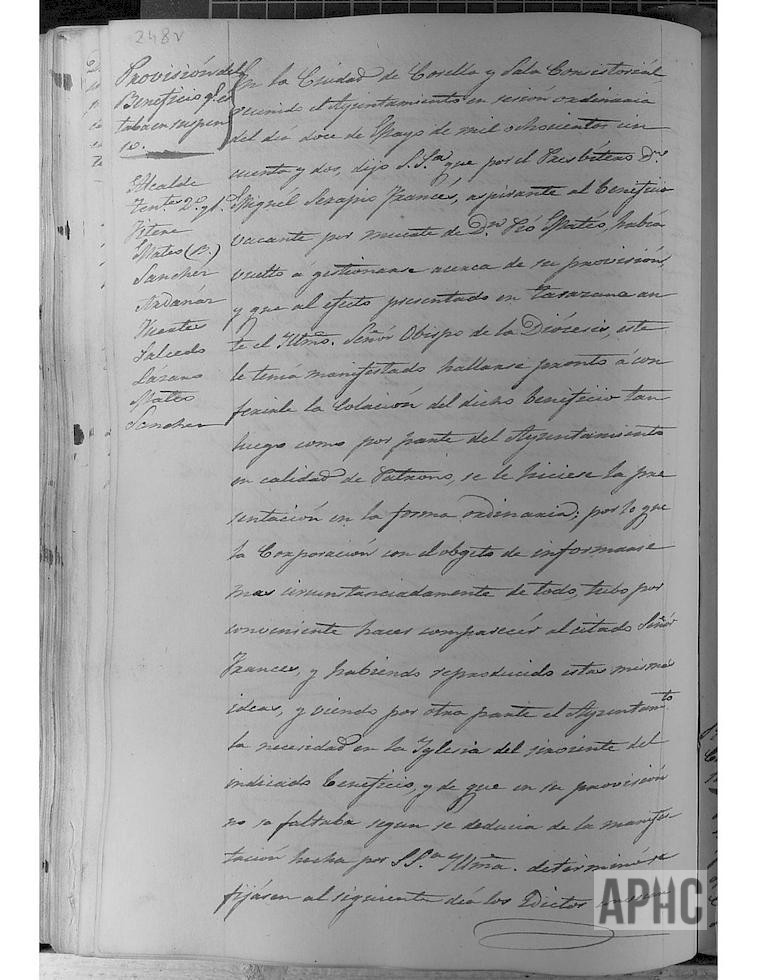 248v
Provisión del
Beneficio q.e es
taba en suspen
so.
Alcalde
Tente. 2.º y 1.º
Mateo (B.)
Sanchez
Andanár
Vicente
Salcedo
Lázaro
Mateo
Sanchez
En la Ciudad de Corella y Sala Consistorial
reunido el Ayuntamiento en sesión ordinaria
del dia doce de Mayo de mil ochocientos cin
cuenta y dos, dijo S.Sria que por el Presbítero Dn.
Miguél Serapio Francés, aspirante al beneficio
vacante por muerte de Dn. Pió Mateo, habia
vuelto á gestionarse acerca de su provisión,
y que al efecto presentado en Tarazona an
te el Iltmo. Señór Obispo de la Diócesis, este
le tenia manifestado hallarse pronto á con
ferirle la Colación del dicho beneficio tan
luego como por parte del Ayuntamiento
en calidad de Patrono, se le hiciese la pre
sentación en la forma ordinaria; por lo que
la Corporación con el objeto de informarse
mas circunstanciadamente de todo, tubo por
conveniente hacer comparecér al citado Señór
Frances, y habiendo reproducido estas mismas
ideas, y viendo por otra parte el Ayuntam.to
la necesidad en la Iglesia del sirviente del
indicado beneficio, y de que en su provisión
no se faltaba segun se deducia de la manifes
tación hecha por S.S.a Iltma. determinó se
fijásen al siguiente dia los Edictos
APHC